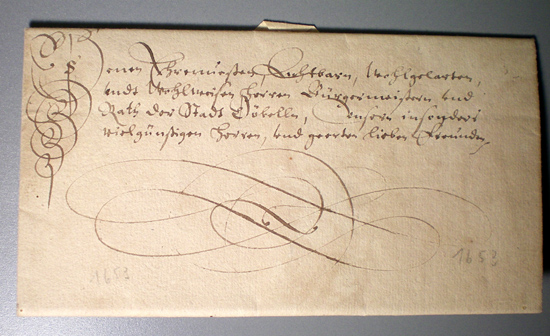 Denen Ehrenuesten, Achtbarn, Wohlgelarten,
undt Wohlweisen Herren Bürgermeistern vnd
Rath der Stadt Döbelln, Vnsern insonders
vielgünstigen Herren, vnd geerten lieben Freunden
1653 1653